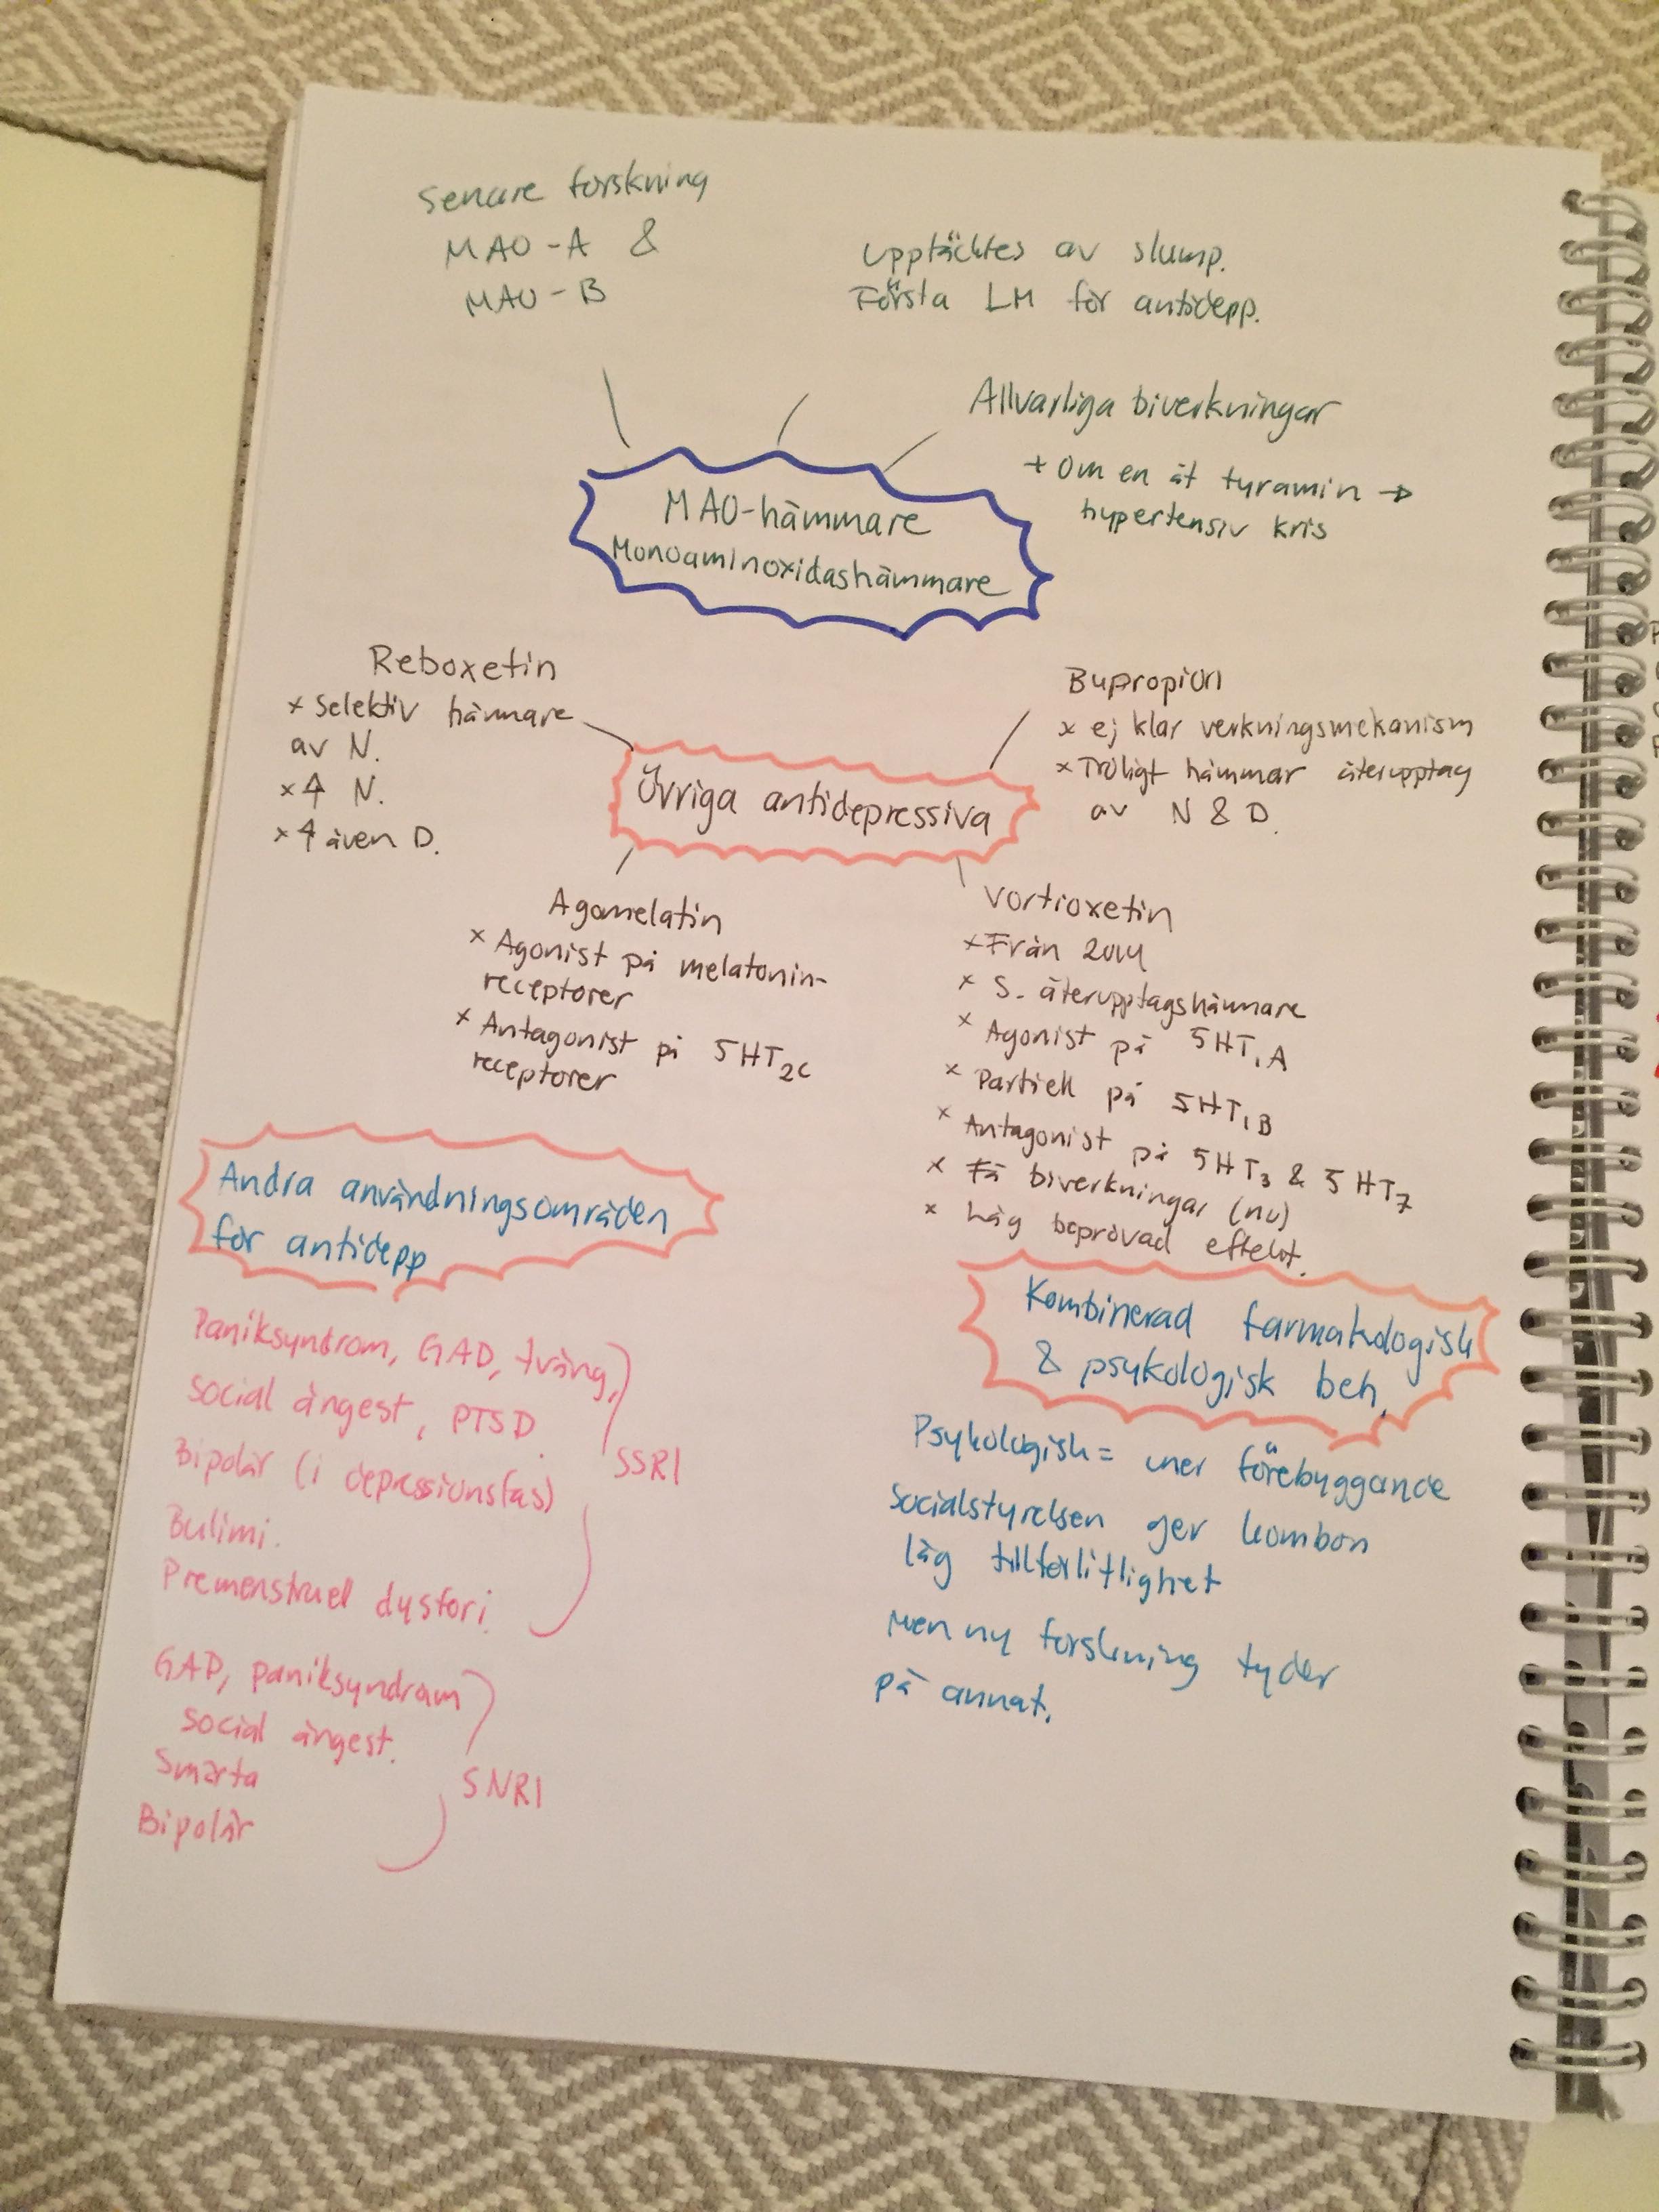 Senare forskning
MAO-A &
MAO-B
Upptäcktes av slump.
Första LM för antidepp.
Allvarliga biverkningar
+ Om en åt tyramin →
hypertensiv kris
MAO-hämmare
Monoaminoxidashämmare
Reboxetin
x Selektiv hämmare
av N.
x ↑ N.
x ↑ även D.
Bupropion
x ej klar verkningsmekanism
x Troligt hämmar återupptag
av N & D.
Övriga antidepressiva
Agomelatin
x Agonist på melatonin-
receptorer
x Antagonist på 5HT2C
receptorer
Vortioxetin
x Från 2014
x S. återupptagshämmare
x Agonist på 5HT1A
x Partiell på 5HT1B
x Antagonist på 5HT3 & 5HT7
x Få biverkningar (nu)
x Låg beprövad effekt.
Andra användningsområden
för antidepp
Paniksyndrom, GAD, tvång,
social ångest, PTSD.
Bipolär (i depressionsfas)
Bulimi.
Premenstruel dysfori.
SSRI
GAD, paniksyndrom
social ångest.
Smärta
Bipolär
SNRI
Kombinerad farmakologisk
& psykologisk beh.
Psykologisk = mer förebyggande
Socialstyrelsen ger kombon
låg tillförlitlighet
Men ny forskning tyder
på annat.